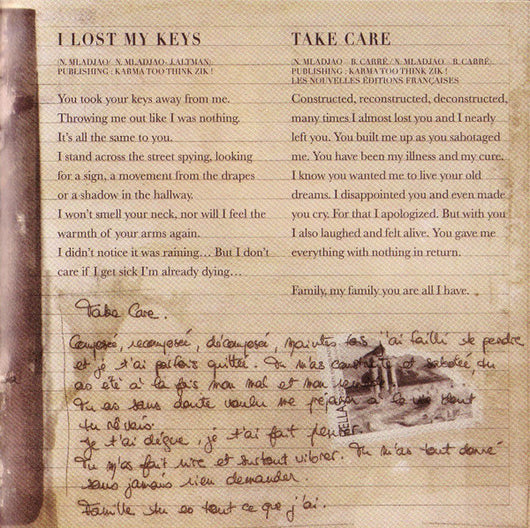 I LOST MY KEYS
(N. MLADJAO/ N. MLADJAO- J.ALTMAN).
PUBLISHING : KARMA TOO THINK ZIK !
You took your keys away from me.
Throwing me out like I was nothing.
It's all the same to you.
I stand across the street spying, looking
for a sign, a movement from the drapes
or a shadow in the hallway.
I won't smell your neck, nor will I feel the
warmth of your arms again.
I didn't notice it was raining... But I don't
care if I get sick I'm already dying...
TAKE CARE
(N. MLADJAO – B. CARRÉ/ N. MLADJAO – B. CARRÉ).
PUBLISHING : KARMA TOO THINK ZIK !
LES NOUVELLES ÉDITIONS FRANÇAISES
Constructed, reconstructed, deconstructed,
many times I almost lost you and I nearly
left you. You built me up as you sabotaged
me. You have been my illness and my cure.
I know you wanted me to live your old
dreams. I disappointed you and even made
you cry. For that I apologized. But with you
I also laughed and felt alive. You gave me
everything with nothing in return.
Family, my family you are all I have.
Take Care.
Composée, recomposée, décomposée, maintes fois j'ai failli te perdre
et je t'ai parfois quittée. Tu m'as construite et sabotée, tu
as été à la fois mon mal et mon
Tu as sans doute voulu me la vie dont
tu rêvais.
Je t'ai déçue, je t'ai fait pleurer.
Tu m'as fait rire et surtout vibrer. Tu m'as tout donné
sans jamais rien demander.
Famille tu es tout ce que j'ai.